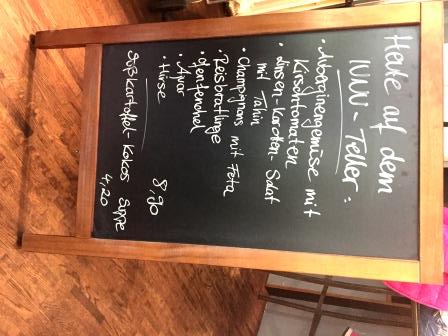 Heute auf dem
NUN - Teller:
• Auberginengemüse mit
Kirschtomaten
• Linsen-Karotten-Salat
mit Tahin
• Champignons mit Feta
• Reisbratlinge
• Ofenfenchel
• Ajvar
• Hirse
8,90
Süßkartoffel-Kokos Suppe
4,20